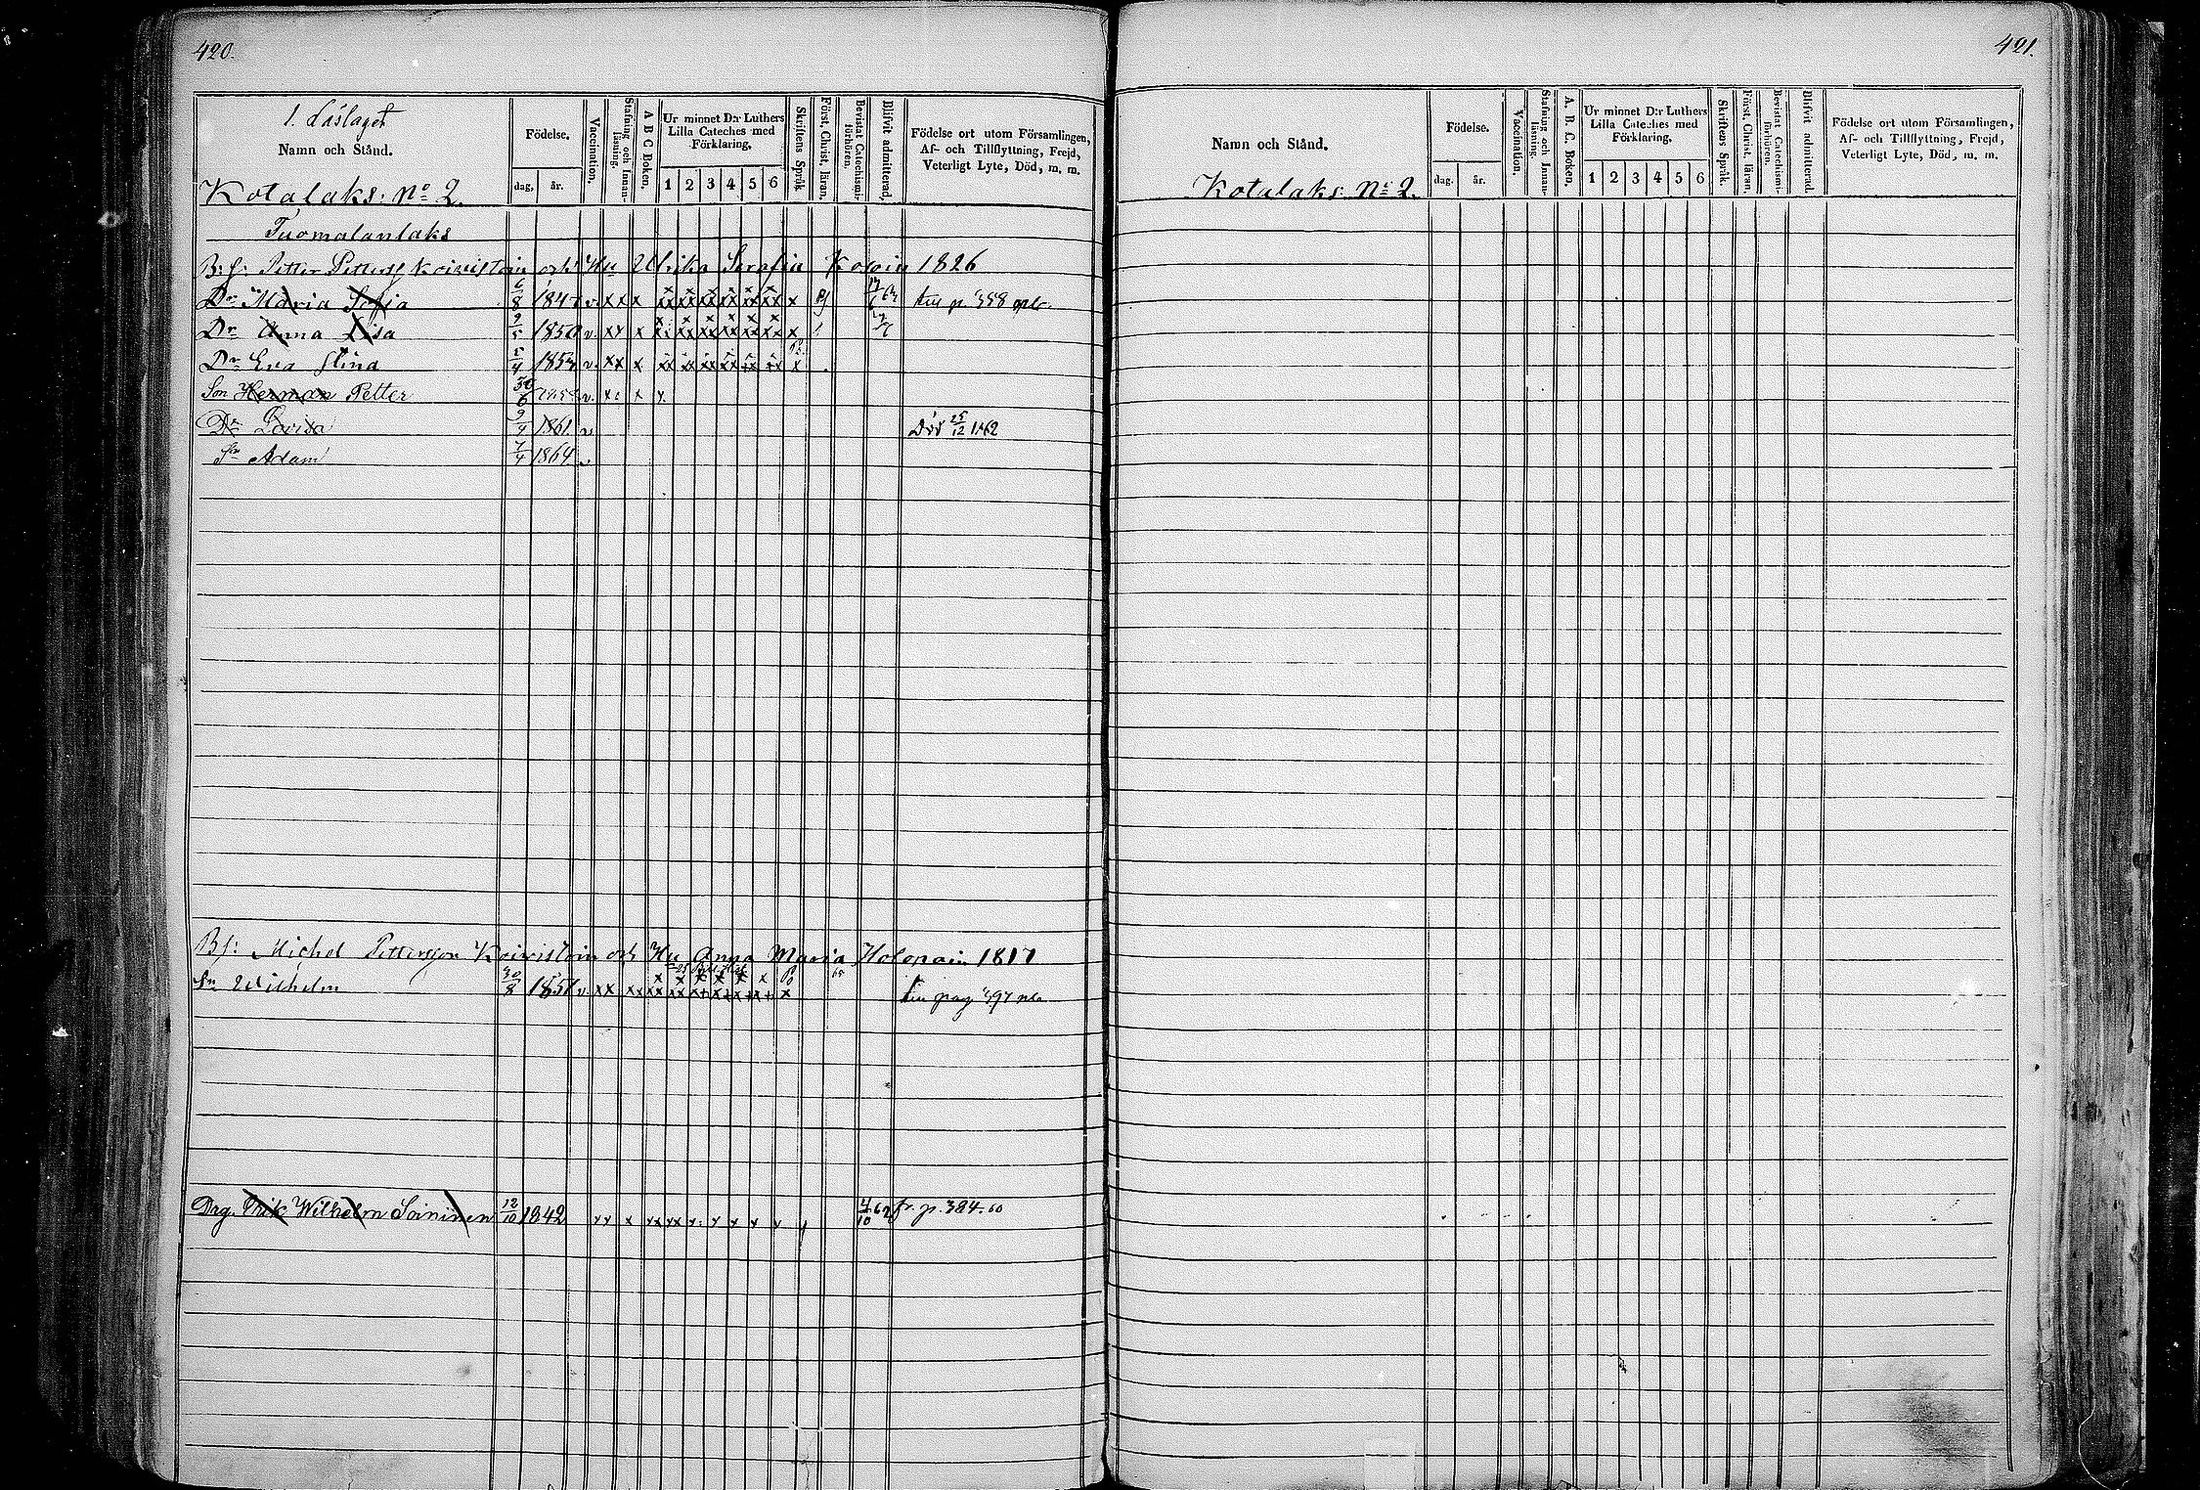 420.
1. Låslaget
Namn och Stånd.
Födelse.
dag, år.
Vaccination.
Stafning och Innanläsning.
A B C Boken.
Ur minnet D:r Luthers Lilla Cateches med Förklaring,
1 2 3 4 5 6
Skriftens Språk
Först. Christ. läran.
Bevistat Catechismi förhören.
Blifvit admitterad,
Födelse ort utom Församlingen,
Af- och Tillflyttning, Frejd,
Veterligt Lyte, Död, m. m.
Kotalaks: No 2.
Tuomalanlaks
B:f: Petter Petterss Koivistoin och Hu Ulrika Serafia 1826
Dr Maria Sofia 6/8 184 v. x x x x x x x x x x till p. 358
Dr Anna Lisa 9/5 1850 v. x x x x x x x x x x
Dr Eva Stina 5/4 185 v. x x x x x x x x x x
Son Herman Petter 30/6 v. x x x
Dr Lovisa 9/9 1861 v Död 25/12 1862
Sn Adam 7/4 1864 v
Bf: Michel Pettersson Koivistoin och Hu Anna Maria Holopain 1817
Sn Wilhelm 30/8 1851 v x x x x x x x x x x x till pag 397
Drg. Erik Wilhelm Soininen 12/10 1842 x x x x x x x x x x 4/10 62 fr. p. 384. 60
421.
Namn och Stånd.
Födelse.
dag. år.
Vaccination.
Stafning och Innanläsning.
A. B. C. Boken.
Ur minnet D:r Luthers Lilla Cateches med Förklaring.
1 2 3 4 5 6
Skriftens Språk.
Först. Christ. läran.
Bevistat Catechismi-förhören.
Blifvit admitterad.
Födelse ort utom Församlingen,
Af- och Tillflyttning, Frejd,
Veterligt Lyte, Död, m. m.
Kotalaks: No 2.